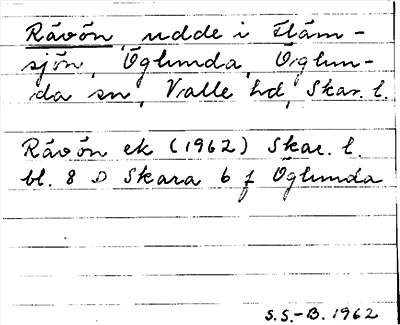 Råvön, udde i Fläm-
sjön, Öglunda, Öglun-
da sn, Valle hd, Skar. l.
Råvön ek (1962) Skar. l.
bl. 8 D Skara 6 f Öglunda
S.S.-B. 1962